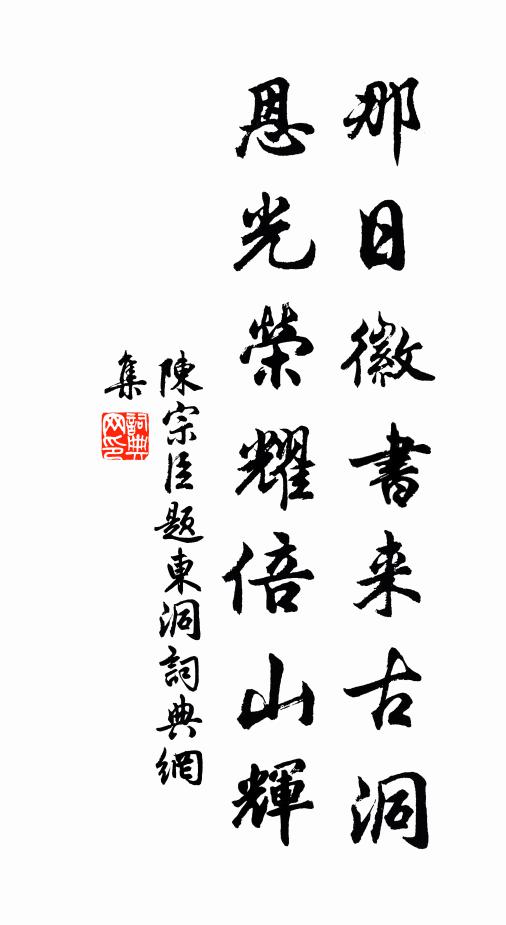 那日徽書来古洞
恩光榮耀倍山輝
陳宗臣題東洞詞典網
集
詞典
网印